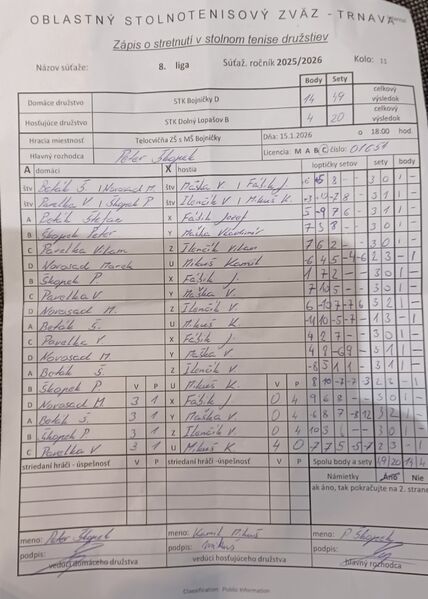 OBLASTNÝ STOLNOTENISOVÝ ZVÄZ - TRNAVA
Zápis o stretnutí v stolnom tenise družstiev
Názov súťaže: 8. liga Súťaž. ročník 2025/2026 Kolo: 11
Body Sety
Domáce družstvo STK Bojničky D 14 49 celkový výsledok
Hosťujúce družstvo STK Dolný Lopašov B 4 20 celkový výsledok
Hracia miestnosť Telocvičňa ZŠ s MŠ Bojničky Dňa: 15.1.2026 o 18:00 hod.
Hlavný rozhodca Peter Škopek Licencia: M A B C číslo: 01051
A domáci X hostia loptičky setov sety body
štv Boťák Š. / Novosad M. štv Maška V / Fašik J 3 0 1 -
štv Pavelka V / Škopek P štv Ilenčík V / Mikuš K. 3 1 1 -
A Boťák Štefan X Fašik Jozef 5 -9 7 6 - 3 1 1 -
B Škopek Peter Y Maška Vladimír 7 5 8 - - 3 0 1 -
C Pavelka Viliam Z Ilenčík Viliam 1 6 2 - - 3 0 1 -
D Novosad Marek U Mikuš Kamil 2 3 - 1
B Škopek P X Fašik J. 1 7 2 - - 3 0 1 -
C Pavelka V Y Maška V. 7 10 5 - - 3 0 1 -
D Novosad M. Z Ilenčík V. 3 2 1 -
A Boťák Š. U Mikuš K. 1 3 - 1
C Pavelka V X Fašik J. 4 2 7 - - 3 0 1 -
D Novosad M Y Maška V. 4 8 -6 9 - 3 1 1 -
A Boťák Š Z Ilenčík V. -8 5 1 1 - 3 1 1 -
B Škopek P V P U Mikuš K. V P 8 10 -7 -7 -3 2 3 - 1
D Novosad M 3 1 X Fašik J. 0 4 9 6 8 - - 3 0 1 -
A Boťák Š 3 1 Y Maška V 0 4 -6 8 7 -8 12 3 2 1 -
B Škopek P 3 1 Z Ilenčík V 0 4 10 3 6 - - 3 0 1 -
C Pavelka V 3 1 U Mikuš K. 4 0 -7 7 5 -5 -7 2 3 - 1
striedaní hráči - úspešnosť V P striedaní hráči -úspešnosť V P Spolu body a sety 49 20 14 4
Námietky Áno Nie
ak áno, tak pokračujte na 2. strane
meno: Peter Škopek meno: Kamil Mikuš meno: P Škopek
podpis: podpis: Mikuš podpis:
vedúci domáceho družstva vedúci hosťujúceho družstva hlavný rozhodca
Classification: Public Information